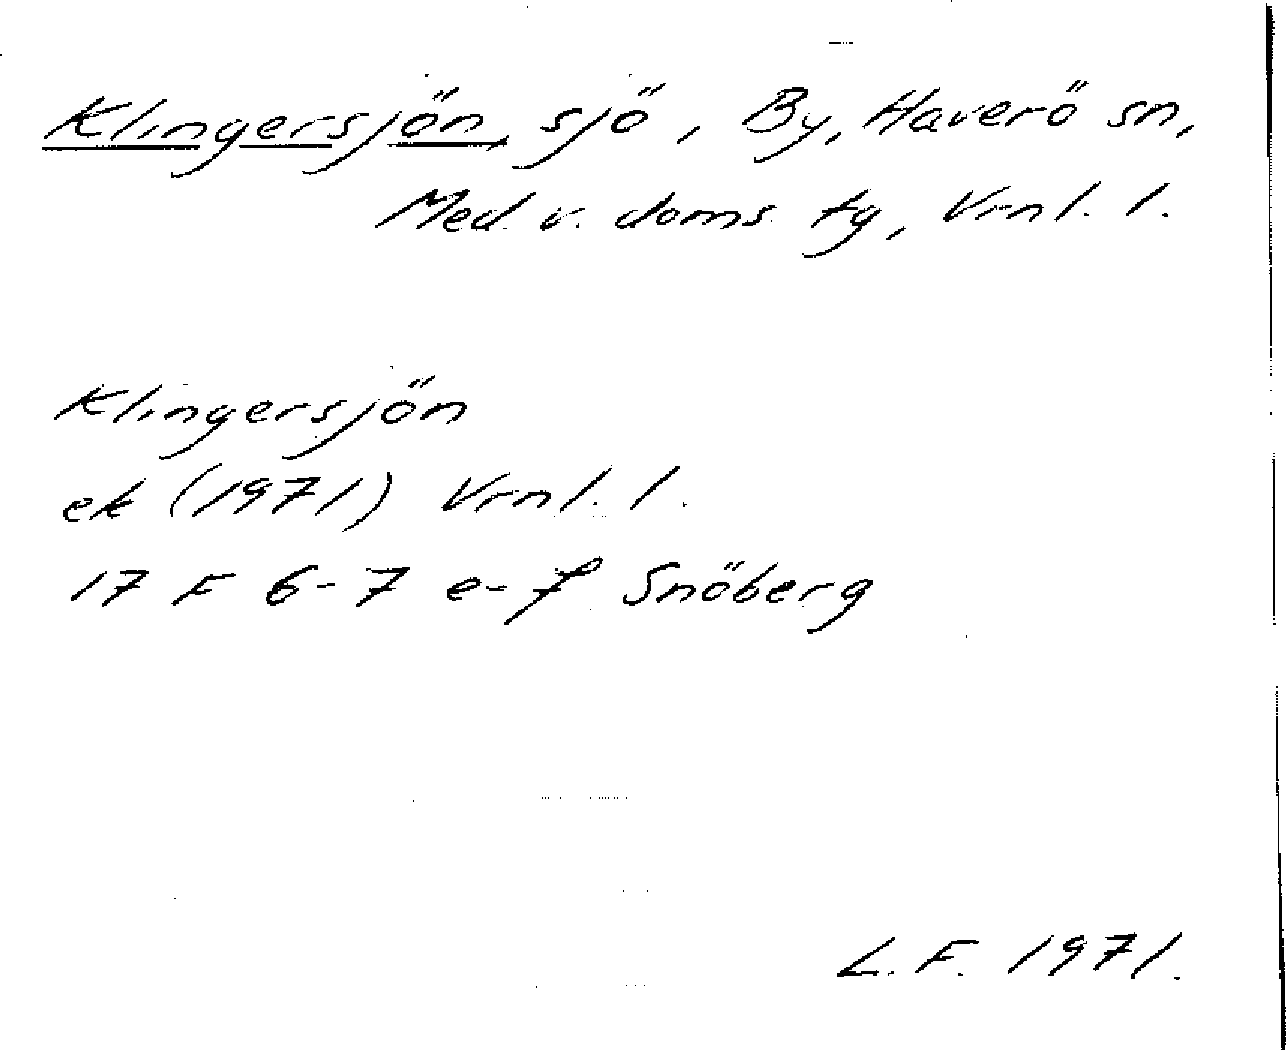 Klingersjön, sjö, By, Haverö sn,
Med. v. doms. tg, Vrnl. l.
Klingersjön
ek (1971) Vrnl. l.
17 F 6-7 e-f Snöberg
L. F. 1971.